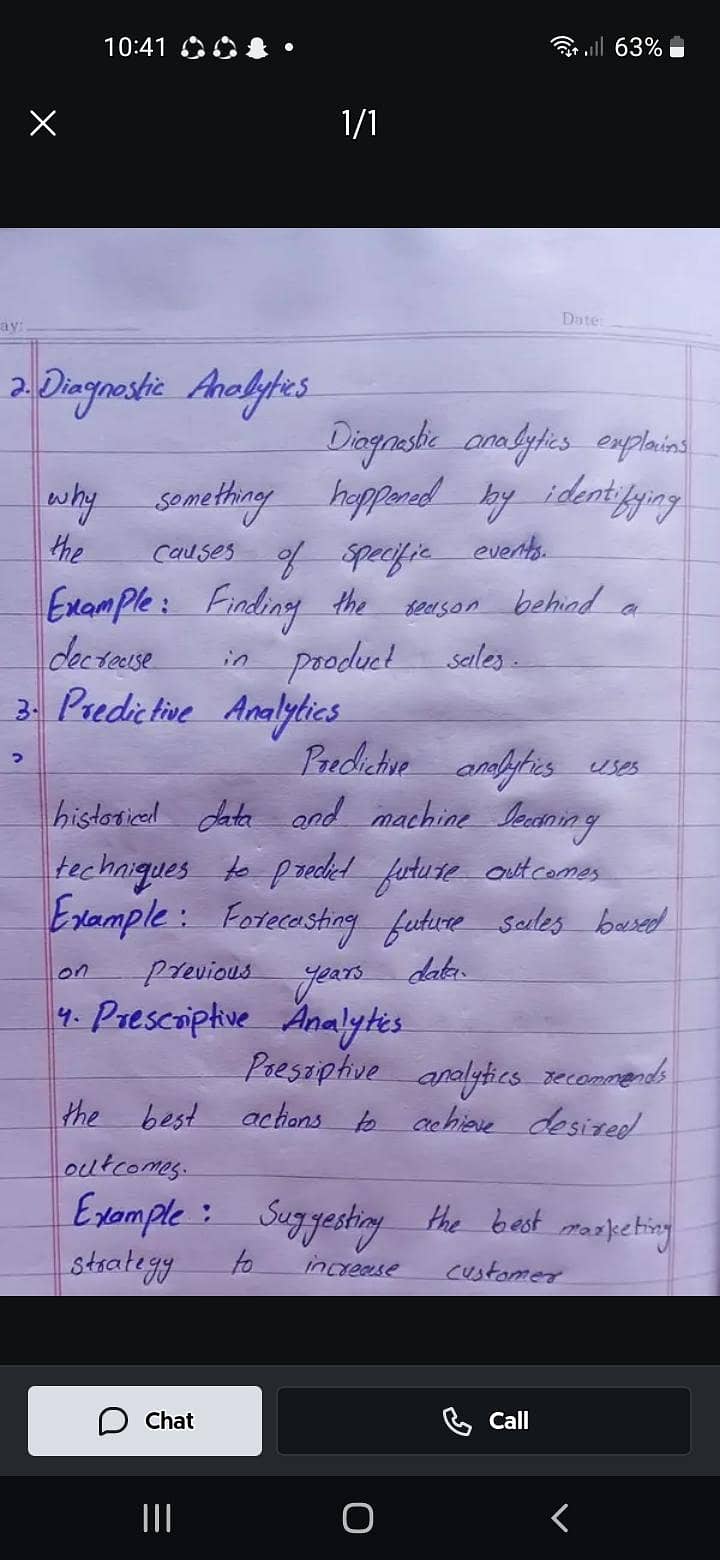 10:41
63%
1/1
ay:
Date:
2. Diagnostic Analytics
Diagnostic analytics explains
why something happened by identifying
the causes of specific events.
Example: Finding the reason behind a
decrease in product sales.
3. Predictive Analytics
Predictive analytics uses
historical data and machine learning
techniques to predict future outcomes
Example: Forecasting future sales based
on previous years data.
4. Prescriptive Analytics
Presriptive analytics recommends
the best actions to achieve desired
outcomes.
Example: Suggesting the best marketing
strategy to increase customer
Chat
Call